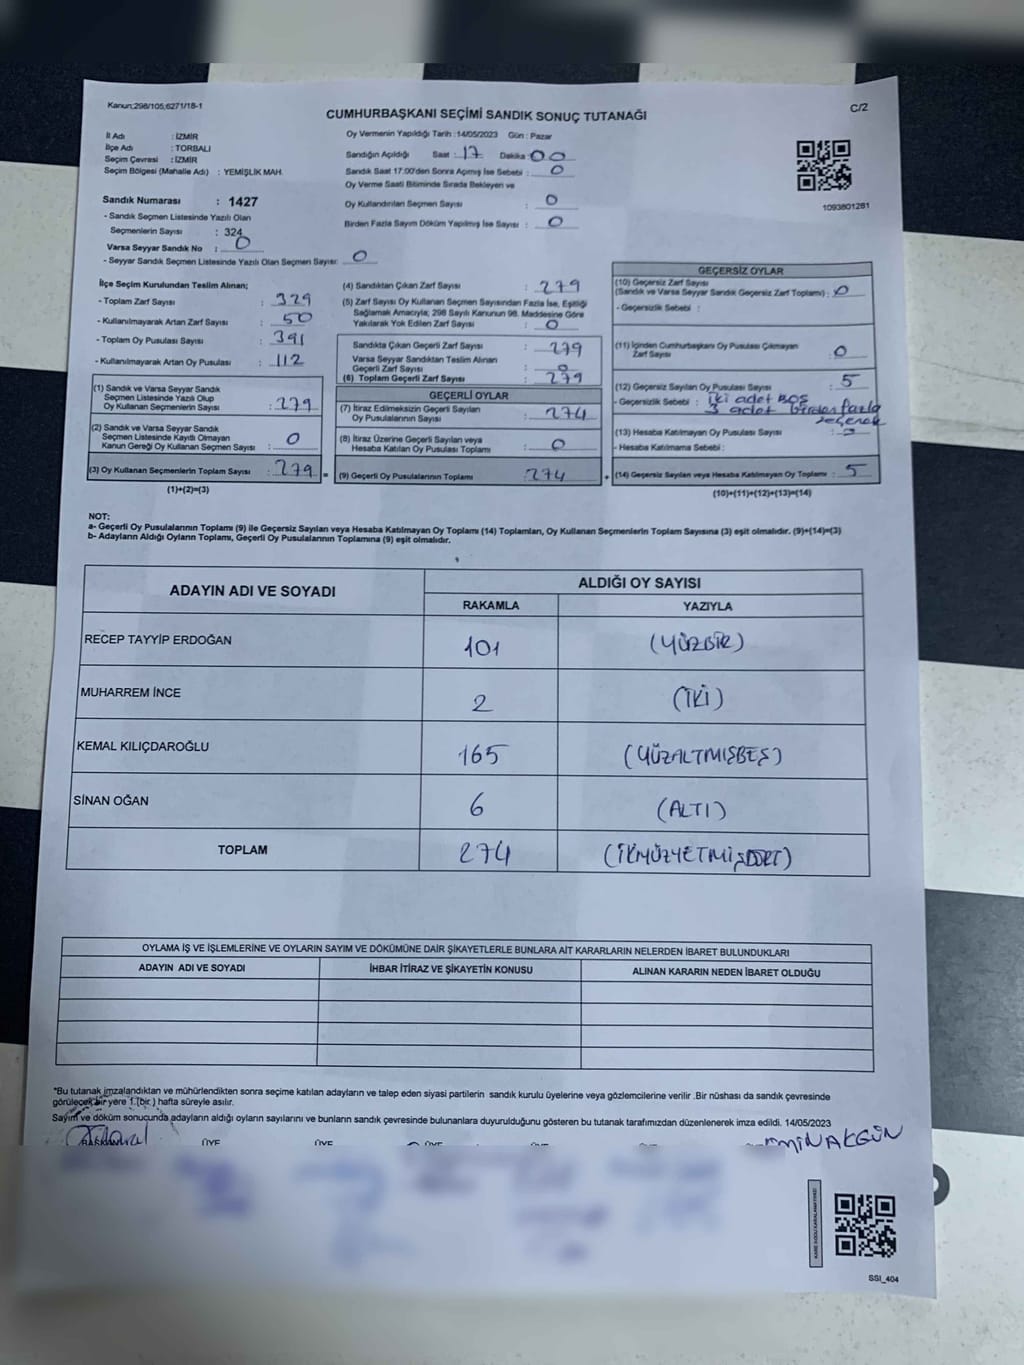 Kanun;298/105;6271/18-1
C/2
CUMHURBAŞKANI SEÇİMİ SANDIK SONUÇ TUTANAĞI
İl Adı : İZMİR
İlçe Adı : TORBALI
Seçim Çevresi : İZMİR
Seçim Bölgesi (Mahalle Adı) : YEMİŞLİK MAH.
Sandık Numarası : 1427
- Sandık Seçmen Listesinde Yazılı Olan
Seçmenlerin Sayısı : 324
Varsa Seyyar Sandık No : 0
- Seyyar Sandık Seçmen Listesinde Yazılı Olan Seçmen Sayısı: 0
Oy Vermenin Yapıldığı Tarih :14/05/2023 Gün : Pazar
Sandığın Açıldığı Saat : 17 Dakika : 00
Sandık Saat 17:00'den Sonra Açımış İse Sebebi : 0
Oy Verme Saati Bitiminde Sırada Bekleyen ve
Oy Kullandırılan Seçmen Sayısı : 0
Birden Fazla Sayım Döküm Yapılmış İse Sayısı : 0
1093801281
İlçe Seçim Kurulundan Teslim Alınan;
- Toplam Zarf Sayısı : 329
- Kullanılmayarak Artan Zarf Sayısı : 50
- Toplam Oy Pusulası Sayısı : 391
- Kullanılmayarak Artan Oy Pusulası : 112
(1) Sandık ve Varsa Seyyar Sandık
Seçmen Listesinde Yazılı Olup
Oy Kullanan Seçmenlerin Sayısı : 279
(2) Sandık ve Varsa Seyyar Sandık
Seçmen Listesinde Kayıtlı Olmayan
Kanun Gereği Oy Kullanan Seçmen Sayısı : 0
(3) Oy Kullanan Seçmenlerin Toplam Sayısı : 279 =
(1)+(2)=(3)
(4) Sandıktan Çıkan Zarf Sayısı : 279
(5) Zarf Sayısı Oy Kullanan Seçmen Sayısından Fazla İse, Eşitliği
Sağlamak Amacıyla; 298 Sayılı Kanunun 98. Maddesine Göre
Yakılarak Yok Edilen Zarf Sayısı : 0
Sandıkta Çıkan Geçerli Zarf Sayısı : 279
Varsa Seyyar Sandıktan Teslim Alınan
Geçerli Zarf Sayısı : 0
(6) Toplam Geçerli Zarf Sayısı : 279
GEÇERLİ OYLAR
(7) İtiraz Edilmeksizin Geçerli Sayılan
Oy Pusulalarının Sayısı : 274
(8) İtiraz Üzerine Geçerli Sayılan veya
Hesaba Katılan Oy Pusulası Toplamı : 0
(9) Geçerli Oy Pusulalarının Toplamı : 274 +
GEÇERSİZ OYLAR
(10) Geçersiz Zarf Sayısı
(Sandık ve Varsa Seyyar Sandık Geçersiz Zarf Toplamı) : 0
- Geçersizlik Sebebi :
(11) İçinden Cumhurbaşkanı Oy Pusulası Çıkmayan
Zarf Sayısı : 0
(12) Geçersiz Sayılan Oy Pusulası Sayısı : 5
- Geçersizlik Sebebi : iki adet BOŞ
3 adet birden fazla
seçenek
(13) Hesaba Katılmayan Oy Pusulası Sayısı :
- Hesaba Katılmama Sebebi :
(14) Geçersiz Sayılan veya Hesaba Katılmayan Oy Toplamı : 5
(10)+(11)+(12)+(13)=(14)
NOT:
a- Geçerli Oy Pusulalarının Toplamı (9) ile Geçersiz Sayılan veya Hesaba Katılmayan Oy Toplamı (14) Toplamları, Oy Kullanan Seçmenlerin Toplam Sayısına (3) eşit olmalıdır. (9)+(14)=(3)
b- Adayların Aldığı Oyların Toplamı, Geçerli Oy Pusulalarının Toplamına (9) eşit olmalıdır.
ADAYIN ADI VE SOYADI
ALDIĞI OY SAYISI
RAKAMLA YAZIYLA
RECEP TAYYİP ERDOĞAN 101 (YÜZBİR)
MUHARREM İNCE 2 (İKİ)
KEMAL KILIÇDAROĞLU 165 (YÜZALTMIŞBEŞ)
SİNAN OĞAN 6 (ALTI)
TOPLAM 274 (İKİYÜZYETMİŞDÖRT)
OYLAMA İŞ VE İŞLEMLERİNE VE OYLARIN SAYIM VE DÖKÜMÜNE DAİR ŞİKAYETLERLE BUNLARA AİT KARARLARIN NELERDEN İBARET BULUNDUKLARI
ADAYIN ADI VE SOYADI İHBAR İTİRAZ VE ŞİKAYETİN KONUSU ALINAN KARARIN NEDEN İBARET OLDUĞU
*Bu tutanak imzalandıktan ve mühürlendikten sonra seçime katılan adayların ve talep eden siyasi partilerin sandık kurulu üyelerine veya gözlemcilerine verilir .Bir nüshası da sandık çevresinde
görülecek bir yere 1.(bir.) hafta süreyle asılır.
Sayım ve döküm sonucunda adayların aldığı oyların sayılarını ve bunların sandık çevresinde bulunanlara duyurulduğunu gösteren bu tutanak tarafımızdan düzenlenerek imza edildi. 14/05/2023
BAŞKAN ÜYE ÜYE ÜYE
AKGÜN
SSI_404